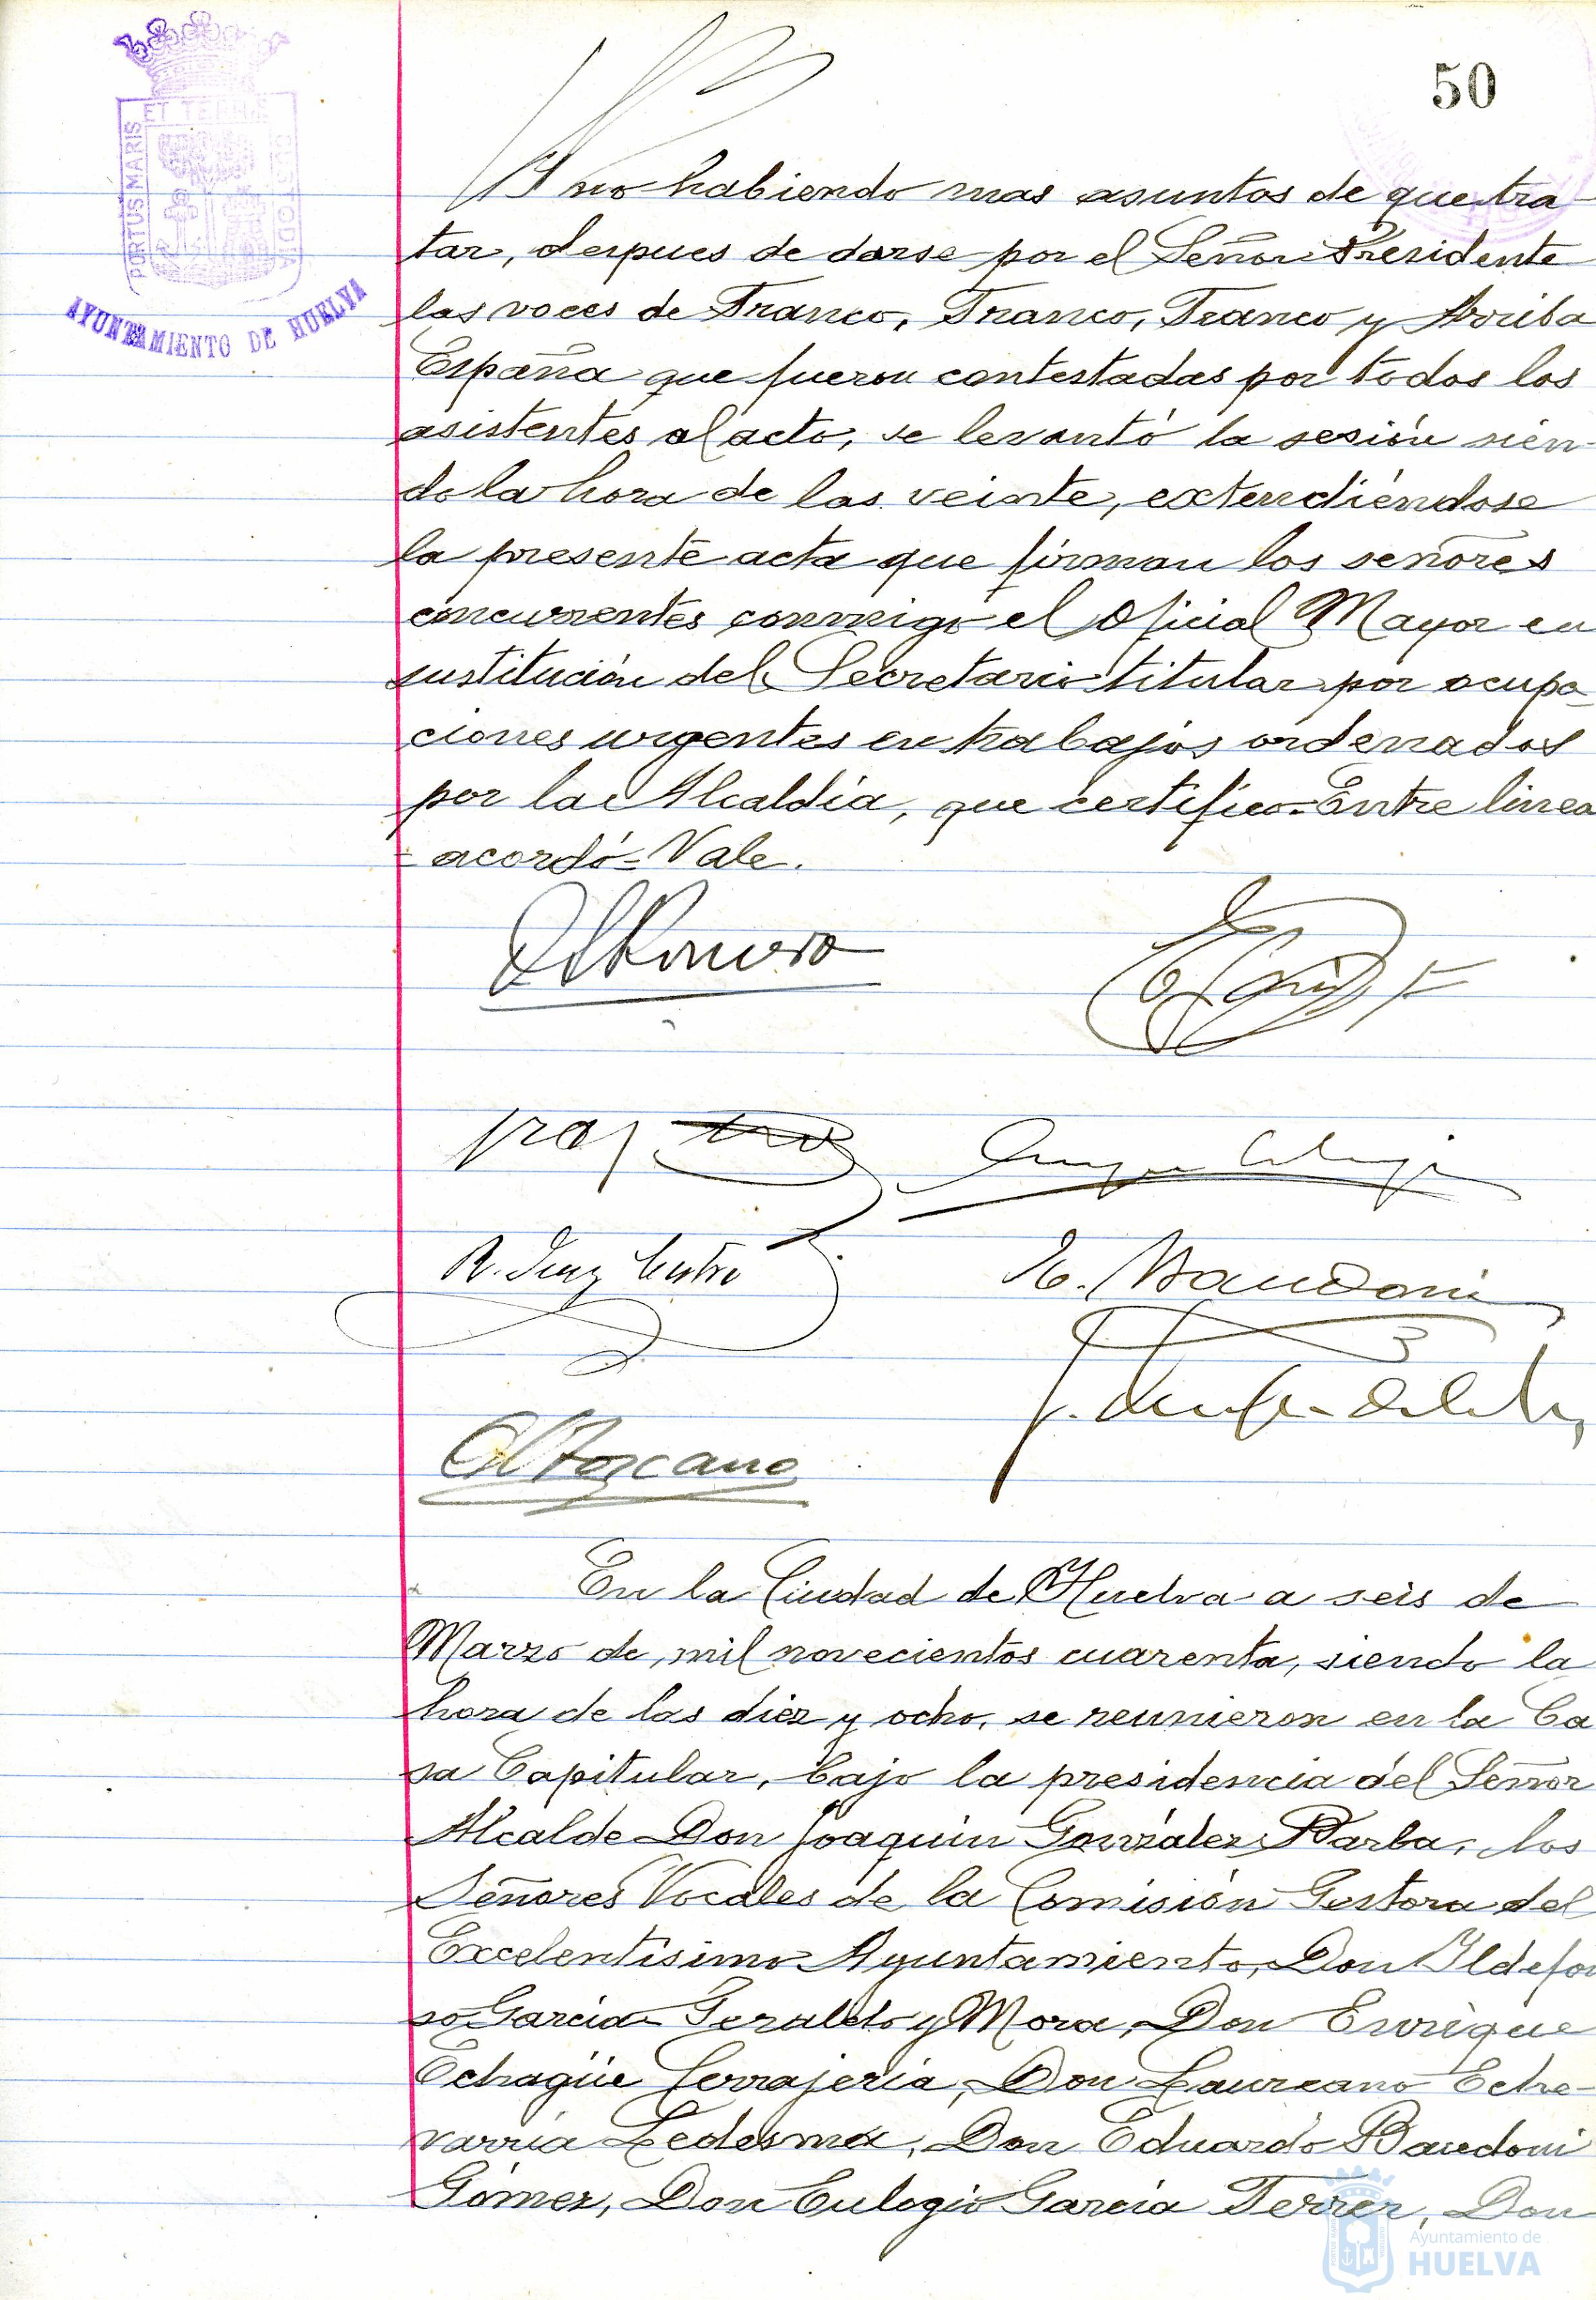 50
PORTUS MARIS ET TERRE CUSTODIA
AYUNTAMIENTO DE HUELVA
Y no habiendo mas asuntos de que tra-
tar, despues de darse por el Señor Presidente
las voces de Franco, Franco, Franco y Arriba
España que fueron contestadas por todos los
asistentes al acto, se levantó la sesión sien-
do la hora de las veinte, extendiéndose
la presente acta que firman los señores
concurrentes conmigo el Oficial Mayor en
sustitución del Secretario titular por ocupa-
ciones urgentes en trabajos ordenados
por la Alcaldía, que certifico=Entre linea
- acordó=Vale.
Romero
R. Diaz
E. Baudoni
Toscano
En la Ciudad de Huelva a seis de
Marzo de mil novecientos cuarenta, siendo la
hora de las diez y ocho, se reunieron en la Ca
sa Capitular, bajo la presidencia del Señor
Alcalde Don Joaquin González Barba, los
Señores Vocales de la Comisión Gestora del
Excelentísimo Ayuntamiento, Don Ildefon
so Garcia Geraldo y Mora, Don Enrique
Echagüe Cerrajeria, Don Laureano Eche-
varria Ledesma, Don Eduardo Baudoni
Gómez, Don Eulogio Garcia Ferrer, Don
Ayuntamiento de
HUELVA